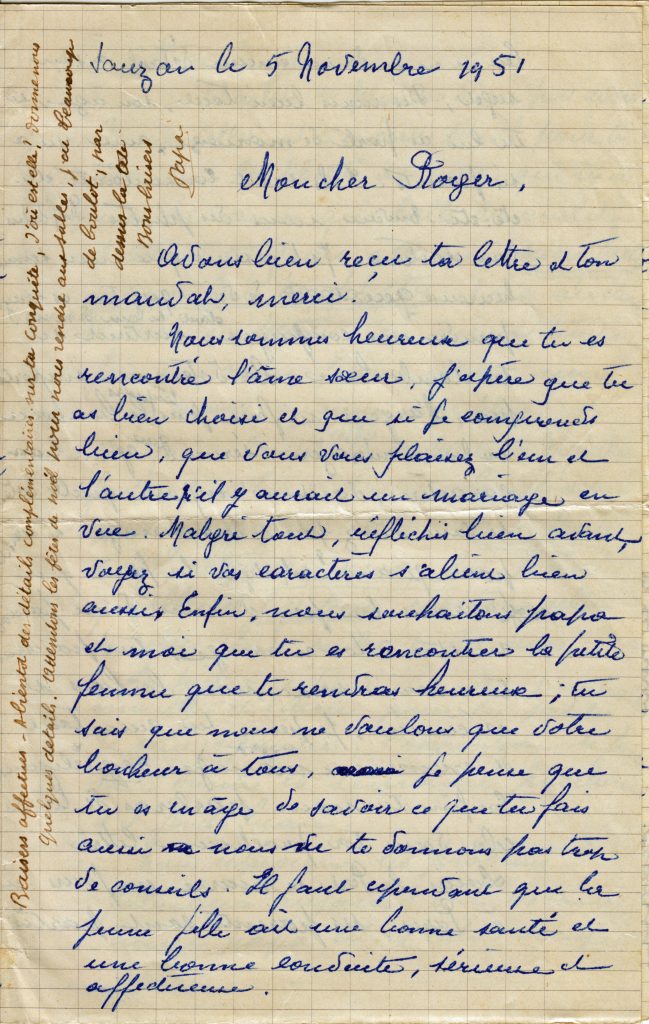 Sauzon le 5 Novembre 1951
Mon cher Roger,
Avons bien reçu ta lettre et ton
mandat, merci.
Nous sommes heureux que tu es
rencontré l'âme sœur, j'espère que tu
as bien choisi et que si je comprends
bien, que vous vous plaisez l'un et
l'autre qu'il y aurait un mariage en
vue. Malgré tout, réfléchis bien avant,
voyez si vos caractères s'alient bien
aussi. Enfin, nous souhaitons papa
et moi que tu es rencontrer la petite
femme que te rendras heureux ; tu
sais que nous ne voulons que votre
bonheur à tous, je pense que
tu es en âge de savoir ce que tu fais
aussi nous ne te donnons pas trop
de conseils Il faut cependant que la
jeune fille ait une bonne santé et
une bonne conduite, sérieuse et
affectueuse.
Baisers affectueux - détails complémentaires sur ta conquête, d'où est elle, donne nous
quelques détails. Attendons les fêtes de noël pour nous rendre aux sables, j'ai beaucoup
de boulot, par
dessus la tête
Bons baisers
Papa